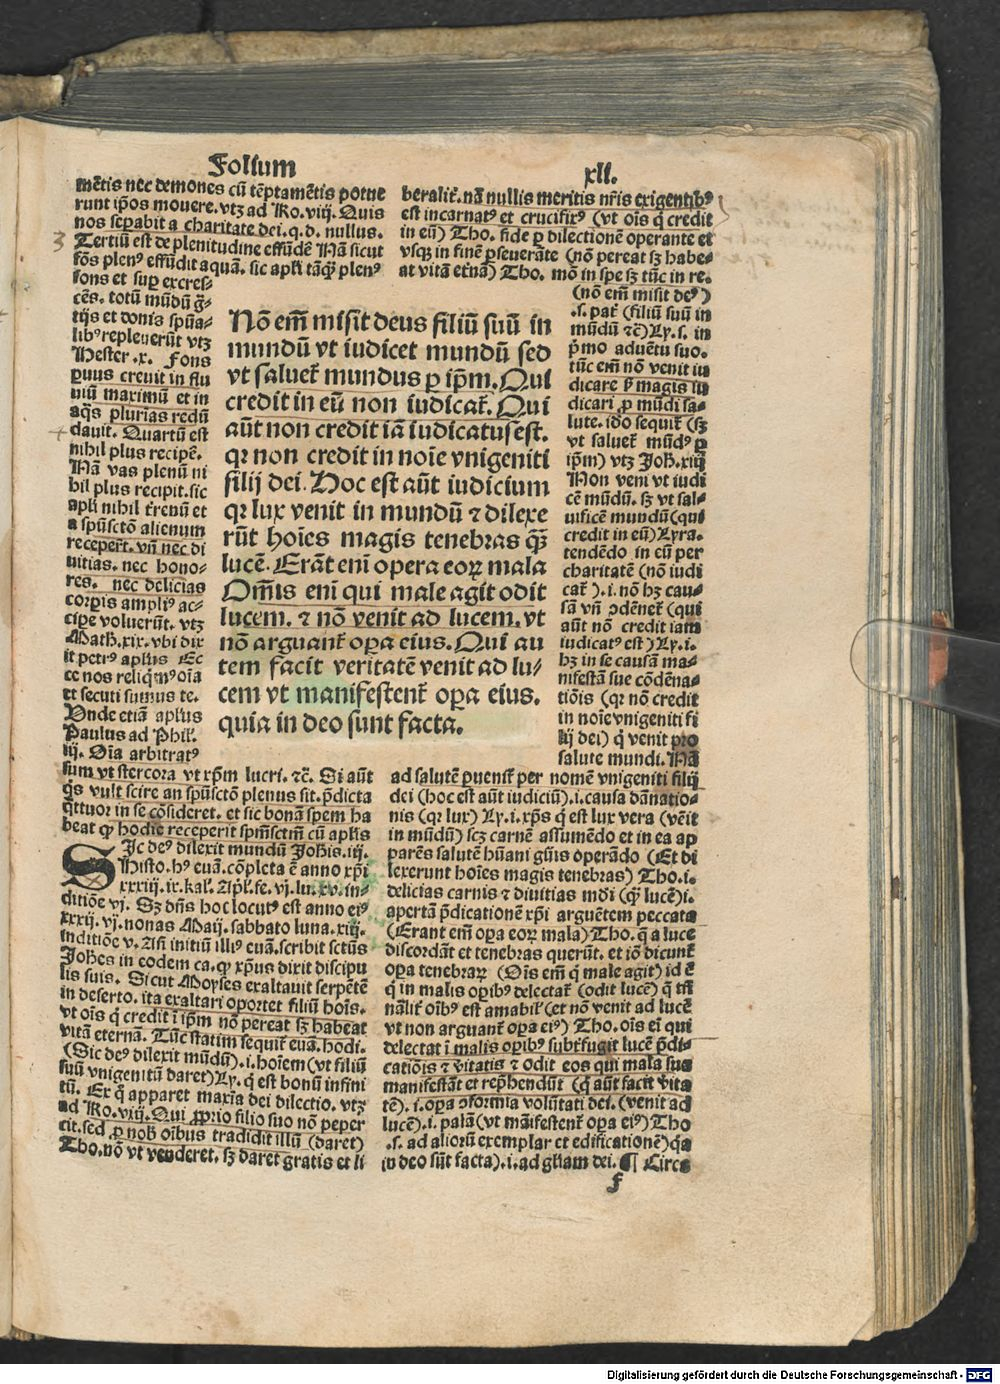 Folium xli.
mētis nec demones cū tēptamētis potue
runt ip̄os mouere. vtꝫ ad Ro. viij. Quis
nos seꝑabit a charitate dei. q. d. nullus.
Tertiū est de plenitudine effūdēe Nā sicut
fōs plenꝰ effūdit aquā. sic apl̄i tāq̄ꝫ plenꝰ
fons et suꝑ excres-
cēs. totū mūdū g̃-
tijs et donis spūa-
libꝰ repleuerūt vtꝫ
Hester .x. Fons
ꝑuus creuit in flu
uiū maximū et in
aq̄s plurias redū
dauit. Quartū est
nihil plus recipē.
Nā vas plenū ni
hil plus recipit. sic
apl̄i nihil t̄renū et
a spūsctō alienum
receper̄t. vn̄ nec di
uitias. nec hono-
res. nec delicias
corꝑis ampliꝰ ac-
ciꝑe voluerūt. vtꝫ
Math. xix. vbi dix
it petrꝰ apl̄us Ec
ce nos reliq̄mꝰ oīa
et secuti sumus te.
Unde etiā apl̄us
Paulus ad Phil̄.
iij. Oīa arbitratꝰ
sum vt stercora vt xp̄m lucri. ⁊c̄. Si aūt
q̄s vult scire an spūsctō plenus sit. p̄dicta
q̄ttuor in se cōsideret. et sic bonā spem ha
beat ꝙ hodie receperit spm̄sctm̄ cū apl̄is
Nō em̄ misit deus filiū suū in
mundū vt iudicet mundū sed
vt saluet̄ mundus ꝑ ip̄m. Qui
credit in eū non iudicat̄. Qui
aūt non credit iā iudicatus est.
qꝛ non credit in noīe vnigeniti
filij dei. Hoc est aūt iudicium
qꝛ lux venit in mundū ⁊ dilexe
rūt hoīes magis tenebras q̄ꝫ
lucē. Erāt enī opera eoꝝ mala
Om̄is enī qui male agit odit
lucem. ⁊ nō venit ad lucem. vt
nō arguant̄ oꝑa eius. Qui au
tem facit veritatē venit ad lu-
cem vt manifestent̄ oꝑa eius.
quia in deo sunt facta.
Sic deꝰ dilexit mundū Johīs. iij.
Histo. hꝰ euā. cōpleta ē anno xp̄i
xxxiij. ix. kal̄. Apl̄. fe. vj. lu. xv. in-
ditiōe vj. Sꝫ dn̄s hoc locutꝰ est anno eiꝰ
xxxij. vj. nonas Maij. sabbato luna. xiij.
inditiōe v. An̄ initiū illiꝰ euā. scribit sctūs
Johēs in eodem ca. ꝙ xp̄us dixit discipu
lis suis. Sicut Moyses exaltauit serpētē
in deserto. ita exaltari oportet filiū hoīs.
vt oīs q̄ credit ī ip̄m nō pereat sꝫ habeat
vitā eternā. Tūc statim sequit̄ euā. hodi.
(Sic deꝰ dilexit mūdū). i. hoīem (vt filiū
suū vnigenitū daret) Ly. q̄ est bonū infini
tū. Ex q̄ apparet maxīa dei dilectio. vtꝫ
ad Ro. viij. Qui ꝓprio filio suo nō peper
cit. sed ꝓ nob̄ oībus tradidit illū (daret)
Tho. nō vt venderet. sꝫ daret gratis et li
beralit̄. nā nullis meritis nr̄is exigentibꝰ
est incarnatꝰ et crucifixꝰ (vt oīs q̄ credit
in eū) Tho. fide ꝑ dilectionē operante et
vsqꝫ in finē ꝑseuerāte (nō pereat sꝫ habe-
at vitā et̄nā) Tho. mō in spe sꝫ tūc in re.
(nō em̄ misit deꝰ)
.s. pat̄ (filiū suū in
mūdū ⁊c̄) Ly. s. in
p̄mo aduētu suo.
tūc em̄ nō venit iu
dicare p̄ magis iu
dicari ꝓ mūdi sa-
lute. iđo sequit̄ (sꝫ
vt saluet̄ mūdꝰ ꝑ
ip̄m) vtꝫ Joh̄. xiij
Non veni vt iudi
cē mūdū. sꝫ vt sal-
uificē mundū (qui
credit in eū) Lyra.
tendēdo in eū per
charitatē (nō iudi
cat̄ ). i. nō hꝫ cau-
sā vn̄ ↄdēnet̄ (qui
aūt nō credit iam
iudicatꝰ est) Ly. i.
hꝫ in se causā ma-
nifestā sue cōdēna-
tiōis (qꝛ nō credit
in noīe vnigeniti fi
lij dei) q̄ venit pro
salute mundi. Nā
ad salutē ꝑuenit̄ per nomē vnigeniti filij
dei (hoc est aūt iudiciū). i. causa dānatio-
nis (qꝛ lux) Ly. i. xp̄s q̄ est lux vera (vēit
in mūdū) scꝫ carnē assumēdo et in ea ap
parēs salutē hūani gn̄is operādo (Et di
lexerunt hoīes magis tenebras) Tho. i.
delicias carnis ⁊ diuitias mōi (q̄ꝫ lucē) i.
apertā p̄dicationē xp̄i arguētem peccata
(Erant em̄ oꝑa eoꝝ mala) Tho. q̄ a luce
discordāt et tenebras querūt. et iō dicunt̄
oꝑa tenebraꝝ (Oīs em̄ q̄ male agit) id ē
q̄ in malis oꝑibꝰ delectat̄ (odit lucē) q̄ tn̄
nālit̄ oībꝰ est amabil̄ (et nō venit ad lucē
vt non arguant̄ oꝑa eiꝰ) Tho. oīs eī qui
delectat̄ ī malis oꝑibꝰ subt̄fugit lucē p̄di-
catiōis ⁊ v̄itatis ⁊ odit eos qui mala sua
manifestāt et rep̄hendūt (q̄ aūt facit v̄ita
tē). i. oꝑa ↄformia volūtati dei. (venit ad
lucē). i. palā (vt māifestent̄ oꝑa eiꝰ) Tho
.s. ad aliorū exemplar et edificationē) q̄a
in deo sūt facta). i. ad gl̄iam dei. ¶ Circa
f
Digitalisierung gefördert durch die Deutsche Forschungsgemeinschaft - DFG